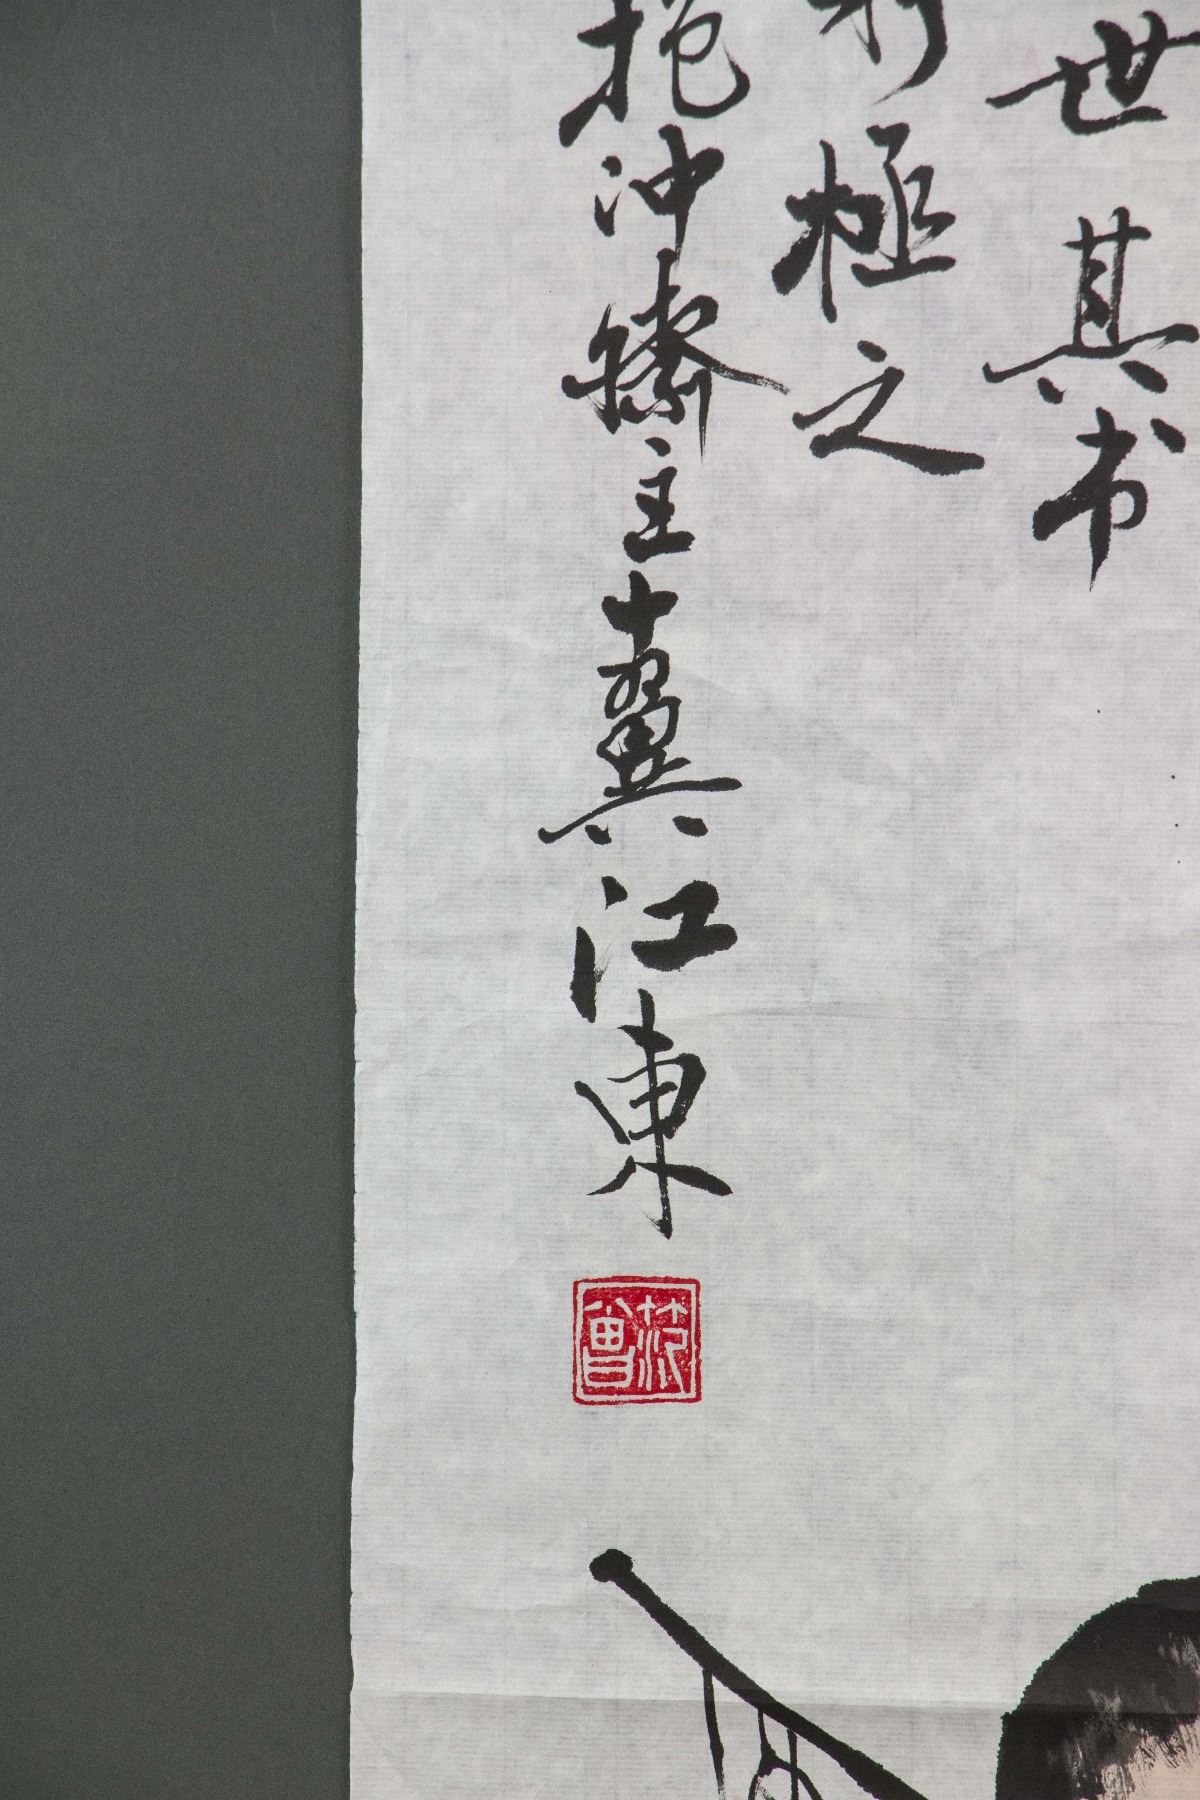 世其书
極之
抱冲齋主十翼江東
范曾